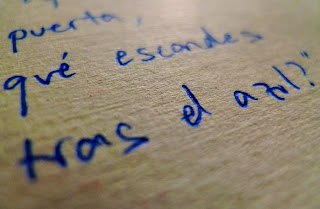 puerta,
qué escondes
tras el azul?"